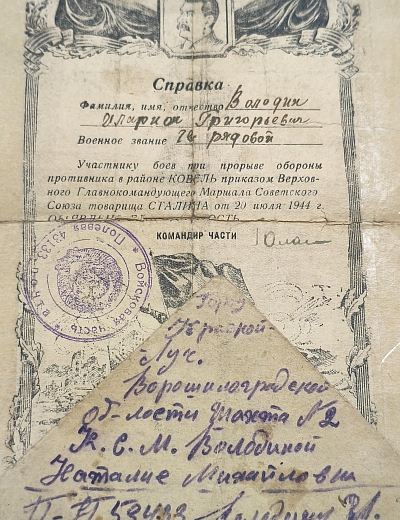 Справка
Фамилия, имя, отчество Володин
Иларион Григорьевич
Военное звание гв рядовой
Участнику боев при прорыве обороны
противника в районе КОВЕЛЬ приказом Верхов-
ного Главнокомандующего Маршала Советского
Союза товарища СТАЛИНА от 20 июля 1944 г.
КОМАНДИР ЧАСТИ
Войсковая часть * Полевая почта
Луч.
Ворошилоградской
области Шахта №2
К.С.М. Володиной
Наталие Михайловны